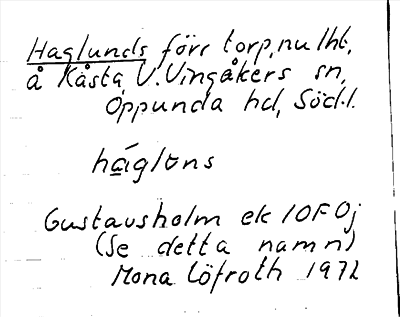 Haglunds förr torp, nu lht,
å Kåsta, V. Vingåkers sn,
Oppunda hd, Södl.
háglɷns
Gustavsholm ek 10F0j
(Se detta namn)
Mona Löfroth 1972